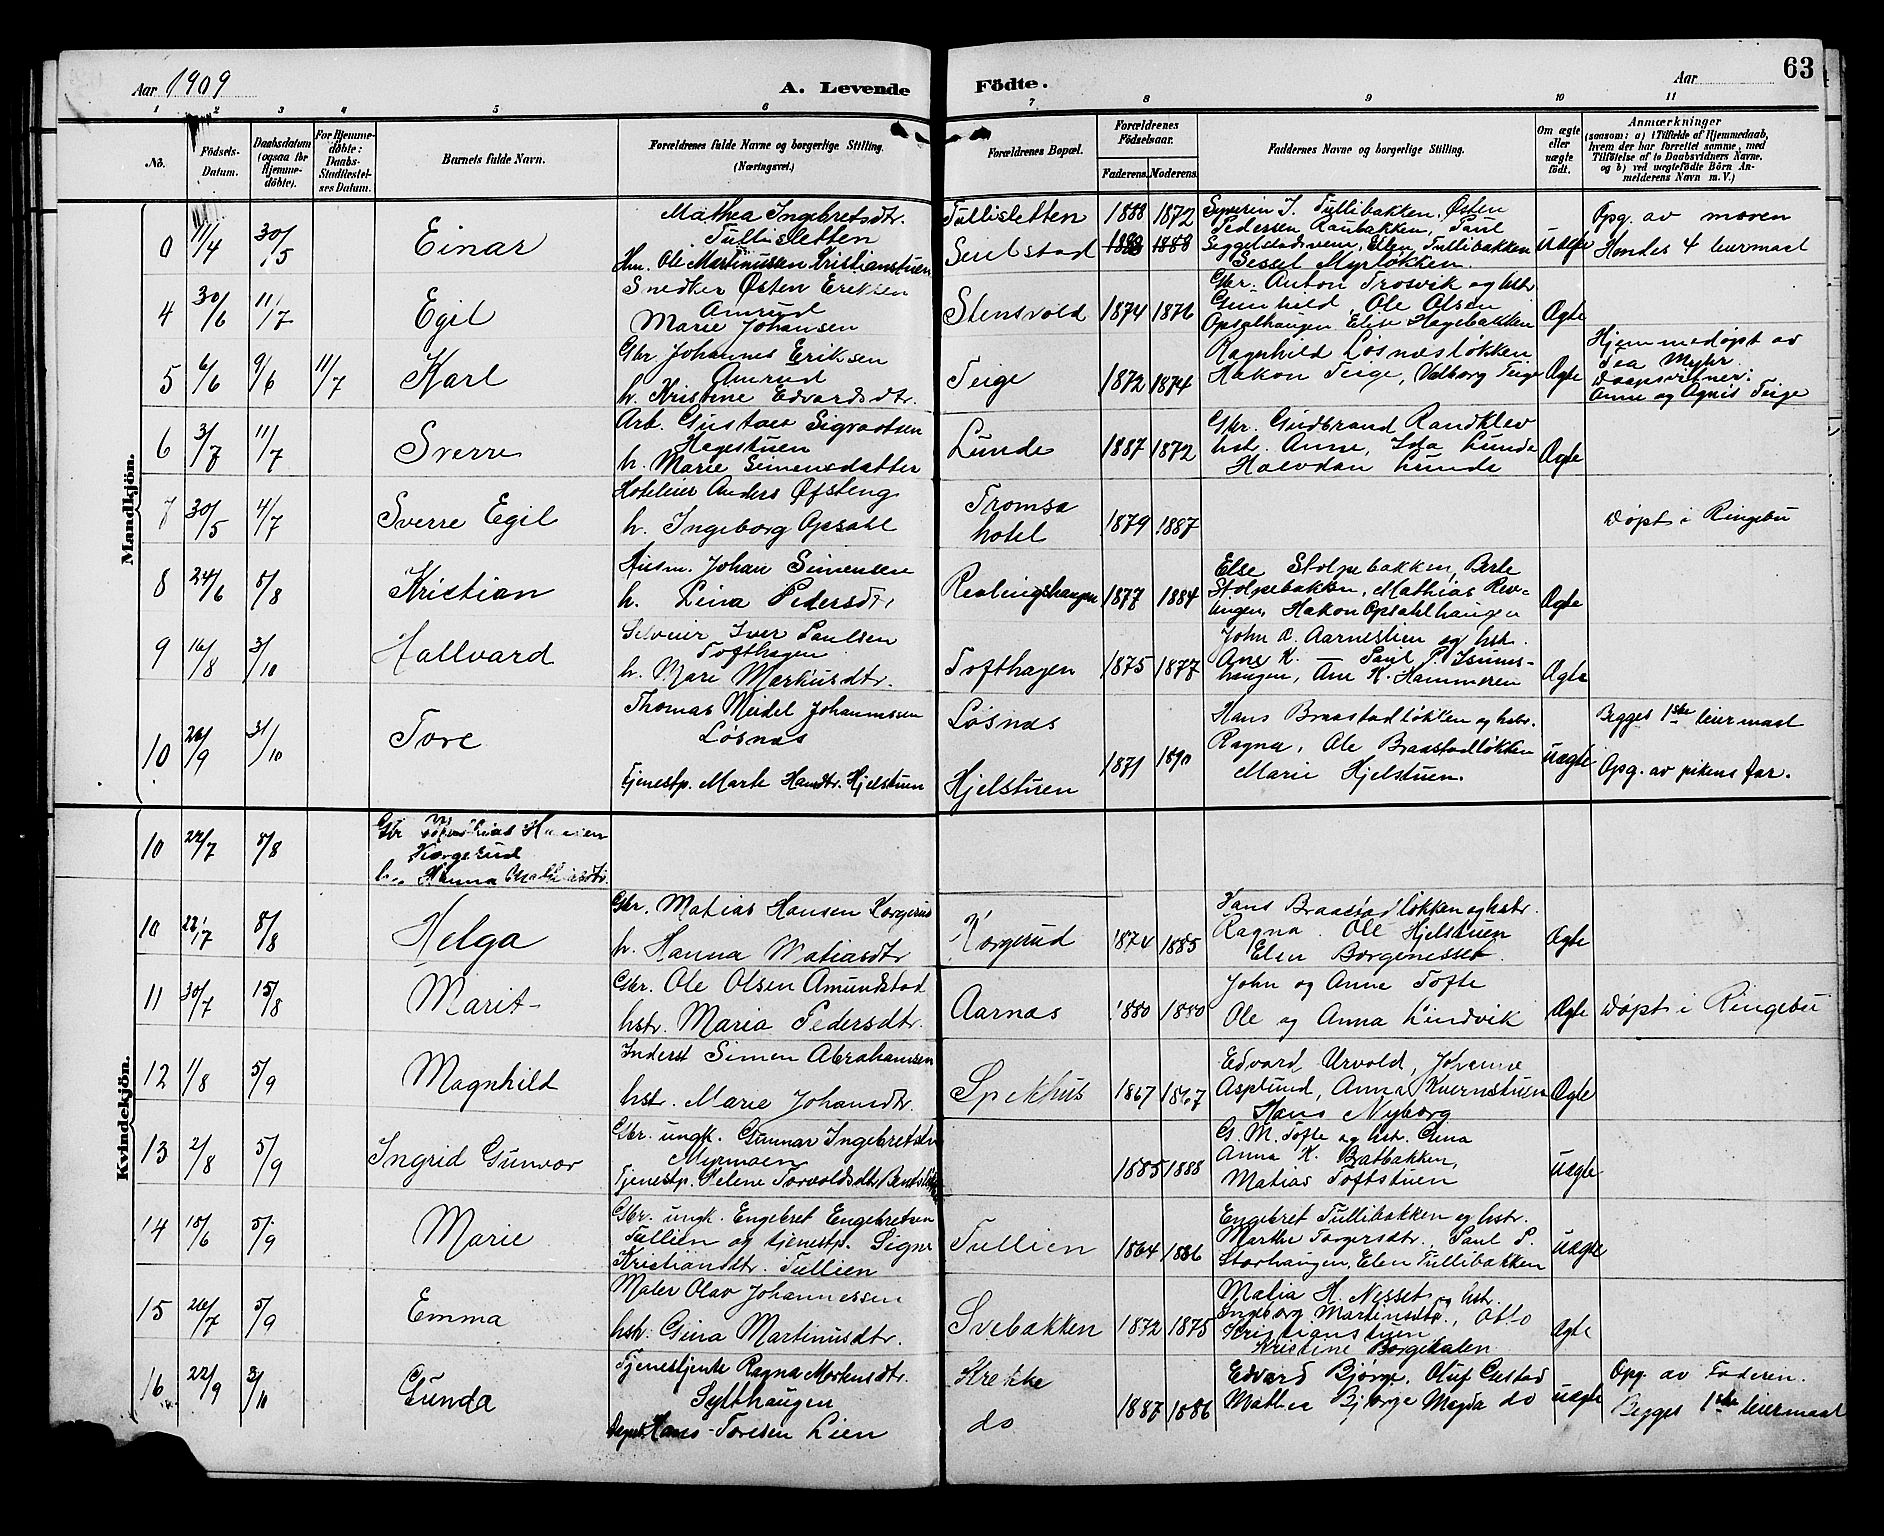 Aar 1909
A. Levende Födte.
Aar
63
1 2 3 4 5 6 7 8 9 10 11
No.
Födsels-Datum.
Daabsdatum (ogsaa for Hjemmedöbte).
For Hjemmedöbte: Daabs-Stadfæstelses Datum.
Barnets fulde Navn.
Forældrenes fulde Navne og borgerlige Stilling. (Næringsvei.)
Forældrenes Bopæl.
Forældrenes Födselsaar. Faderens. Moderens.
Faddernes Navne og borgerlige Stilling.
Om ægte eller uægte födt.
Anmærkninger (saasom: a) i Tilfælde af Hjemmedaab, hvem der har forrettet samme, med Tilföielse af to Daabsvidners Navne, og b) ved uægtefödte Börn Anmelderens Navn m. V.)
Mandkjön.
0 11/4 30/5 Einar
Mathea Ingebretsdtr.
Tullisletten
Hm. Ole Martinussen Kristianstuen
Tullisletten
Seielstad
1888 1872
1888 1888
Syverin J. Tullibakken, Østen
Pedersen Raubakken, Paul
Seggelstadsveen, Ellen Tullibakken
Sessel Myrløkken.
Uægte
Opg. av moren
Hendes 4 leiermaal
4 30/6 11/7 Egil
Snedker Østen Eriksen
Amrud
Marie Johansen
Stensvold
1874 1876
Gbr. Anton Trosvik og hstr
Gunhild, Ole Olsen
Opsalhaugen, Elise Hagebakken
Ægte
5 6/6 9/6 11/7 Karl
Gbr. Johannes Eriksen
Amrud
h. Kristine Edvardsdtr.
Teige
1872 1874
Ragnhild Løsnæsløkken
Hakon Teige, Valborg Teige
Ægte
Hjemmedøpt av
Tea Myhr.
Daapsvitner:
Anne og Agnes Teige
6 3/7 11/7 Sverre
Arb. Gustav Sigvartsen
Hagestuen
h. Marie Simensdatter
Lunde
1887 1872
Gbr. Gudbrand Randklev
hst. Anne, Ida Lunde
Halvdan Lunde
Ægte
7 30/5 4/7 Sverre Egil
Hoteleier Anders Øfsteng
h. Ingeborg Opsahl
Tromsa
hotel
1879 1887
Døpt i Ringebu
8 24/6 8/8 Kristian
Husm. Johan Simensen
h. Lina Pedersdtr.
Revlingshaugen
1877 1884
Else Stolpebakken, Berte
Stolpebakken, Mathias Rev-
lingen, Hakon Opsahlhaugen
Ægte
9 16/8 3/10 Hallvard
Selveier Iver Paulsen
Tofthagen
h. Mari Markusdtr.
Tofthagen
1875 1877
John A. Aarneslien og hst.
Ane K. — Paul P. Isums-
haugen, Ane K. Hammeren
Ægte
10 26/9 31/10 Tore
Thomas Meidel Johannssen
Løsnæs
Tjenestp. Marte Hansdtr. Hjelstuen
Løsnæs
Hjelstuen
1871 1890
Hans Braastadløkken og hstr.
Ragna, Ole Braastadløkken
Marie Hjelstuen.
uægte
Begges 1ste leiermaal
Opg. av pikens far.
Kvindekjön.
10 22/7 8/8
Gbr Mathias Hansen
Korgerud
h. Hanna Mathiasdtr.
10 22/7 8/8 Helga
Gbr. Matias Hansen Korgerud
h. Hanna Matiasdtr
Korgerud
1874 1885
Hans Braastadløkken og hstr.
Ragna. Ole Hjelstuen
Elen Borgenesset.
Ægte
11 30/7 15/8 Marit
Gbr. Ole Olsen Amundstad
hstr. Maria Pedersdtr.
Aarnæs
1880 1880
John og Anne Tofte
Ole og Anna Lindvik
Ægte
Døpt i Ringebu
12 1/8 5/9 Magnhild
Inderst Simen Abrahamsen
hstr. Marie Johansdtr.
Spikhus
1867 1867
Edvard Urvold, Johanne
Asplund, Anna Kvernstuen
Hans Nyborg
Ægte
13 2/8 5/9 Ingrid Gunvor
Gbr. ungk. Gunnar Ingebretsen
Myrmoen
Tjenestp. Helene Torvoldsdtr
1885 1888
G. M. Tofte og hst. Gina
Anna K. Bratbakken,
Matias Toftstuen
uægte
14 15/6 5/9 Marie
Gbr. ungk. Engebret Engebretsen
Tullien og tjenestp. Signe
Kristiansdtr. Tullien
Tullien
1864 1886
Engebret Tullibakken og hstr.
Marthe Torgersdtr. Paul P.
Storhaugen, Elen Tullibakken
uægte
15 26/7 5/9 Emma
Maler Olav Johannessen
hstr. Gina Martinusdtr.
Svebakken
1872 1875
Matia H. Nesset og hst.
Ingeborg Martinsdtr., Otto
Kristianstuen
Kristine Borgekalen
Ægte
16 22/9 3/10 Gunda
Tjenestjente Ragna Markusdtr.
Sylthaugen
Hans Toresen Lien
Krekke
do
1887 1886
Edvard Bjørge, Oluf Gustad
Mathea Bjørge Magda do
uægte
Opg. av Faderen.
Begges 1ste leiermaal